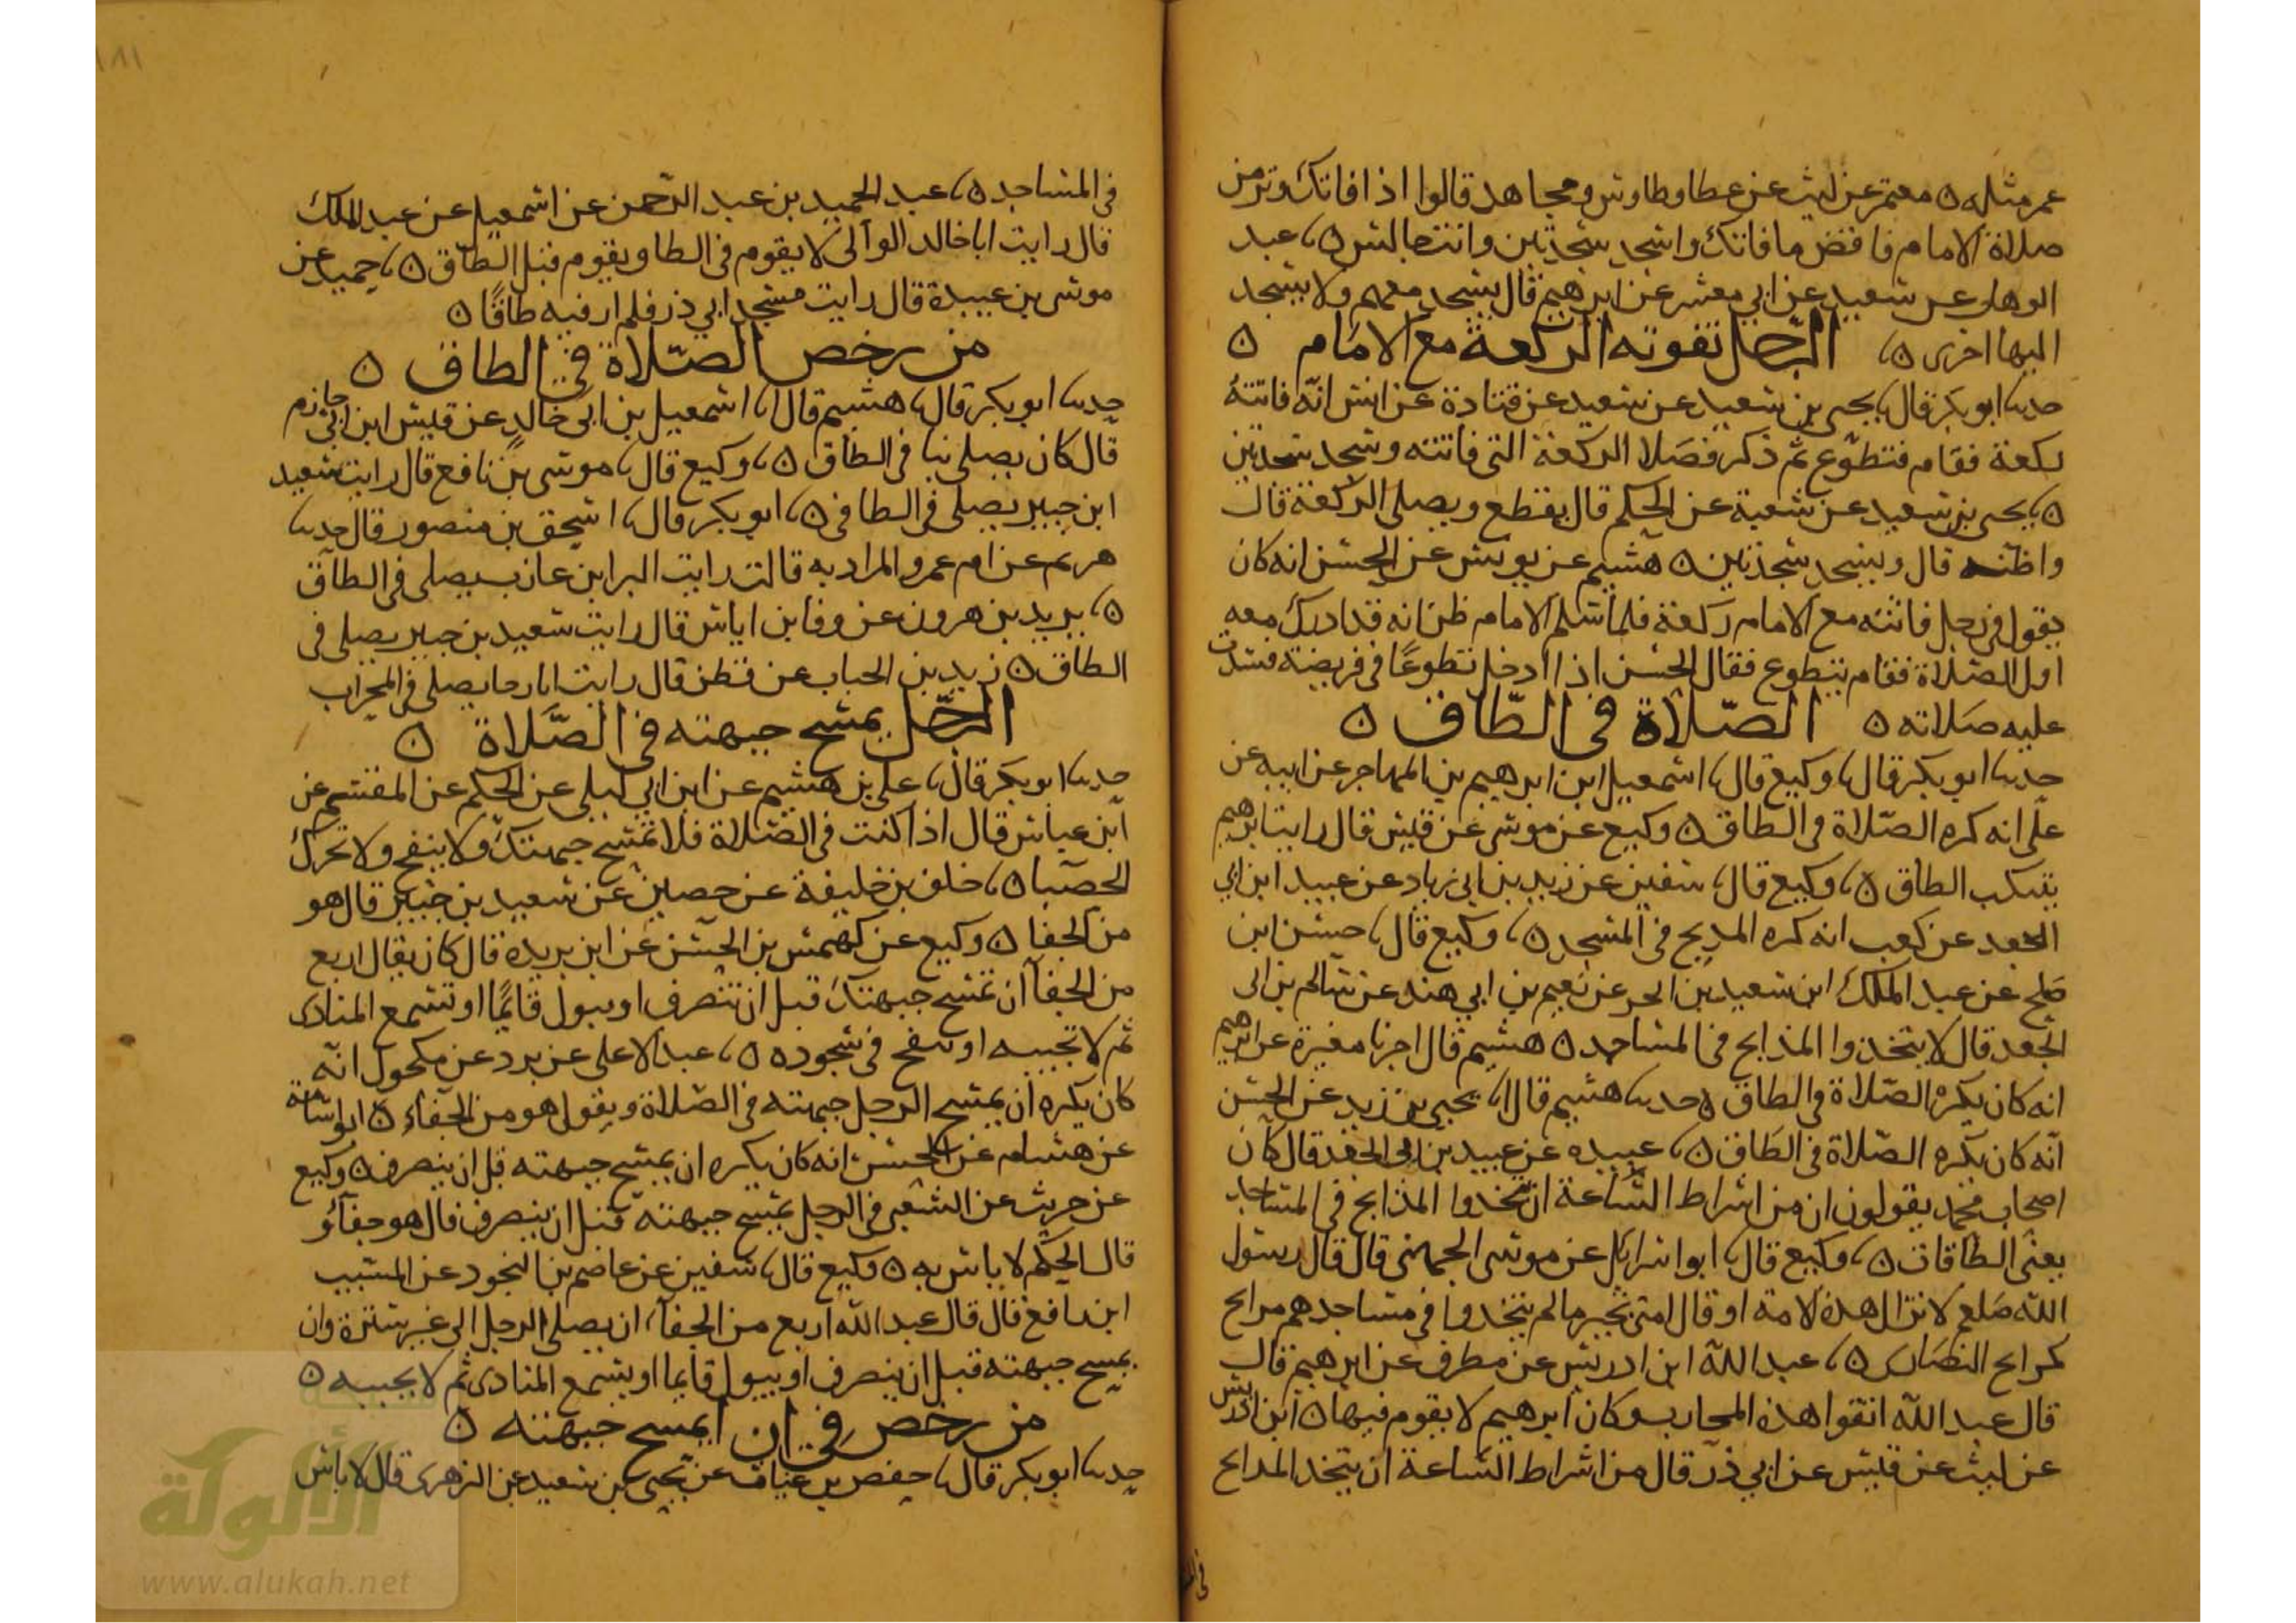 عمر مثله ه معتمر عن ليث عن عطا وطاوس ومجاهد قالوا اذا فاتك وتر من
صلاة الامام فاقض ما فاتك واسجد سجدتين وانت جالس ه عبد
الوهاب عن سعيد عن ابي معشر عن ابرهيم قال يسجد معهم ولا يسجد
اليها اخرى ه الرجل تفوته الركعة مع الامام ه
حدثنا ابو بكر قال يحيى بن سعيد عن سعيد عن قتادة عن انس انه فاتته
ركعة فقام فتطوع ثم ذكر فصلا الركعة التي فاتته وسجد سجدتين
ه يحيى بن سعيد عن شعبة عن الحكم قال يقطع ويصلي الركعة قال
واظنه قال ويسجد سجدتين ه هشيم عن يونس عن الحسن انه كان
يقول في رجل فاتته مع الامام ركعة فلما سلم الامام ظن انه قد ادرك معه
اول الصلاة فقام يتطوع فقال الحسن اذا ادخل تطوعا في فريضته فسدت
عليه صلاته ه الصلاة في الطاق ه
حدثنا ابو بكر قال وكيع قال اسمعيل ابن ابرهيم بن المهاجر عن ابيه عن
على انه كره الصلاة في الطاق ه وكيع عن موسى عن قيس قال رايت ابرهيم
يتنكب الطاق ه وكيع قال سفين عن زيد بن ابي زياد عن عبيد ابن ابي
الجعد عن كعب انه كره المدبح في المسجد ه وكيع قال حسن ابن
صلح عن عبد الملك ابن سعيد بن ابحر عن نعيم بن ابي هند عن سالم بن ابى
الجعد قال لا يتخذوا المذابح في المساجد ه هشيم قال اخبرنا مغيرة عن ابرهيم
انه كان يكره الصلاة في الطاق ه حدثنا هشيم قال يحيى بن زيد عن الحسن
انه كان يكره الصلاة في الطاق ه عبيده عن عبيد بن ابى الجعد قال كان
اصحاب محمد يقولون ان من اشراط الساعة ان تتخذوا المذابح في المساجد
يعنى الطاقات ه وكيع قال ابو اسرائل عن موسى الجهني قال قال رسول
الله صلعم لا تزال هذه الامة او قال امتي بخير ما لم يتخذوا في مساجدهم مدابح
كمدابح النصارى ه عبد الله ابن ادريس عن مطرف عن ابرهيم قال
قال عبد الله اتقوا هذه المحاريب وكان ابرهيم لا يقوم فيها ه ابن ادريس
عن ليث عن قيس عن ابي ذر قال من اشراط الساعة ان يتخذ المدابح
في المساجد ه عبد الحميد بن عبد الرحمن عن اسمعيل عن عبد الملك
قال رايت ابا خالد الوالى لا يقوم في الطا ويقوم قبل الطاق ه حميد عن
موسى بن عبيدة قال رايت مسجد ابي ذر فلم ار فيه طاقا ه
من رخص الصلاة في الطاق ه
حدثنا ابو بكر قال هشيم قال اسمعيل بن ابى خالد عن قيس ابن ابى حازم
قال كان يصلى بنا في الطاق ه وكيع قال موسى بن نافع قال رايت سعيد
ابن جبير يصلى في الطاق ه ابو بكر قال اسحق بن منصور قال حدثنا
هريم عن ام عمرو المراديه قالت رايت البرا بن عازب يصلى في الطاق
ه يزيد بن هرون عن وفا بن اياس قال رايت سعيد بن جبير يصلى في
الطاق ه زيد بن الحباب عن قطن قال رايت ابا رجا يصلى في المحراب
الرجل يمسح جبهته في الصلاة ه
حدثنا ابو بكر قال على بن هشيم عن ابن ابي ليلى عن الحكم عن المقسم عن
ابن عباس قال اذا كنت في الصلاة فلا تمسح جبهتك ولا ينفح ولا تحرك
الحصبا ه خلف بن خليفة عن حصين عن سعيد بن جبير قال هو
من الجفا ه وكيع عن كهمس بن الحسن عن ابن بريده قال كان يقال اربع
من الجفا ان تمسح جبهتك قبل ان تنصرف او يبول قايما او تسمع المنادى
ثم لا تجيبه او تنفح في سجوده ه عبد الاعلى عن برد عن مكحول انه
كان يكره ان يمسح الرجل جبهته في الصلاة ويقول هو من الجفاء ه ابو اسامة
عن هشام عن الحسن انه كان يكره ان يمسح جبهته قبل ان ينصرف ه وكيع
عن حريث عن الشعبي في الرجل يمسح جبهته قبل ان ينصرف قال هو جفآؤ
قال الحكم لا باس به ه وكيع قال سفين عن عاصم بن النجود عن المسيب
ابن رافع قال قال عبد الله اربع من الجفا ان يصلى الرجل الى غير سترة وان
يمسح جبهته قبل ان ينصرف او يبول قايما او يسمع المنادى ثم لا يجيبه ه
من رخص في ان يمسح جبهته ه
حدثنا ابو بكر قال حفص بن غياث عن يحيى بن سعيد عن الزهرى قال لا باس
الألوكة
www.alukah.net